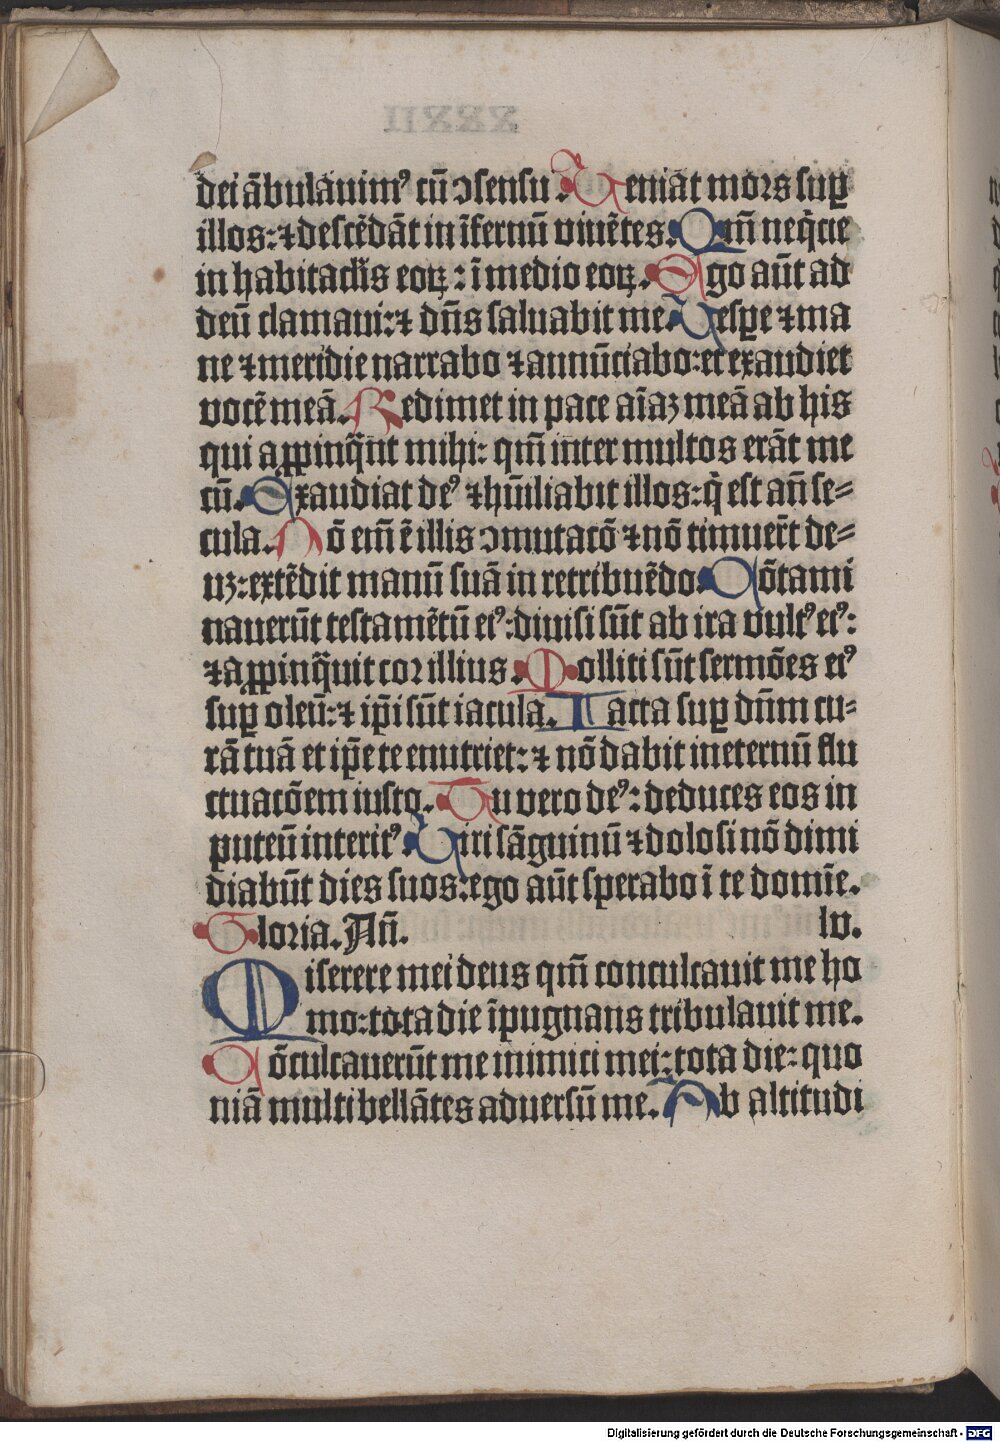 dei ābulauimꝰ cū ↄsensu. Veniāt mors suꝑ
illos: ⁊ descēdāt in īfernū viuētes. Qm̄ neq̄cie
in habitacl̄is eoꝝ: ī medio eoꝝ. Ego aūt ad
deū clamaui: ⁊ dn̄s saluabit me. Vesꝑe ⁊ ma
ne ⁊ meridie narrabo ⁊ annūciabo: et exaudiet
vocē meā. Redimet in pace aīaꝫ meā ab his
qui aꝓpinq̄nt mihi: qm̄ inter multos erāt me
cū. Exaudiat deꝰ ⁊ hūiliabit illos: q̇ est an̄ se⸗
cula. Nō em̄ ē illis ↄmutacō ⁊ nō timuer̄t de⸗
uꝫ: extēdit manū suā in retribuēdo. Cōtami
nauerūt testamētū eiꝰ: diuisi sūt ab ira vultꝰ eiꝰ:
⁊ aꝓpinq̄uit cor illius. Molliti sūt sermōes eiꝰ
suꝑ oleū: ⁊ ip̄i sūt iacula. Iacta suꝑ dn̄m cu⸗
rā tuā et ip̄e te enutriet: ⁊ nō dabit in eternū flu
ctuacōem iusto. Tu vero deꝰ: deduces eos in
puteū interitꝰ. Viri sāguinū ⁊ dolosi nō dimi
diabūt dies suos: ego aūt sperabo ī te domīe.
Gloria. An̄. lv.
Miserere mei deus qm̄ conculcauit me ho
mo: tota die īpugnans tribulauit me.
Cōculcauerūt me inimici mei: tota die: quo
niā multi bellātes aduersū me. Ab altitudi
Digitalisierung gefördert durch die Deutsche Forschungsgemeinschaft - DFG